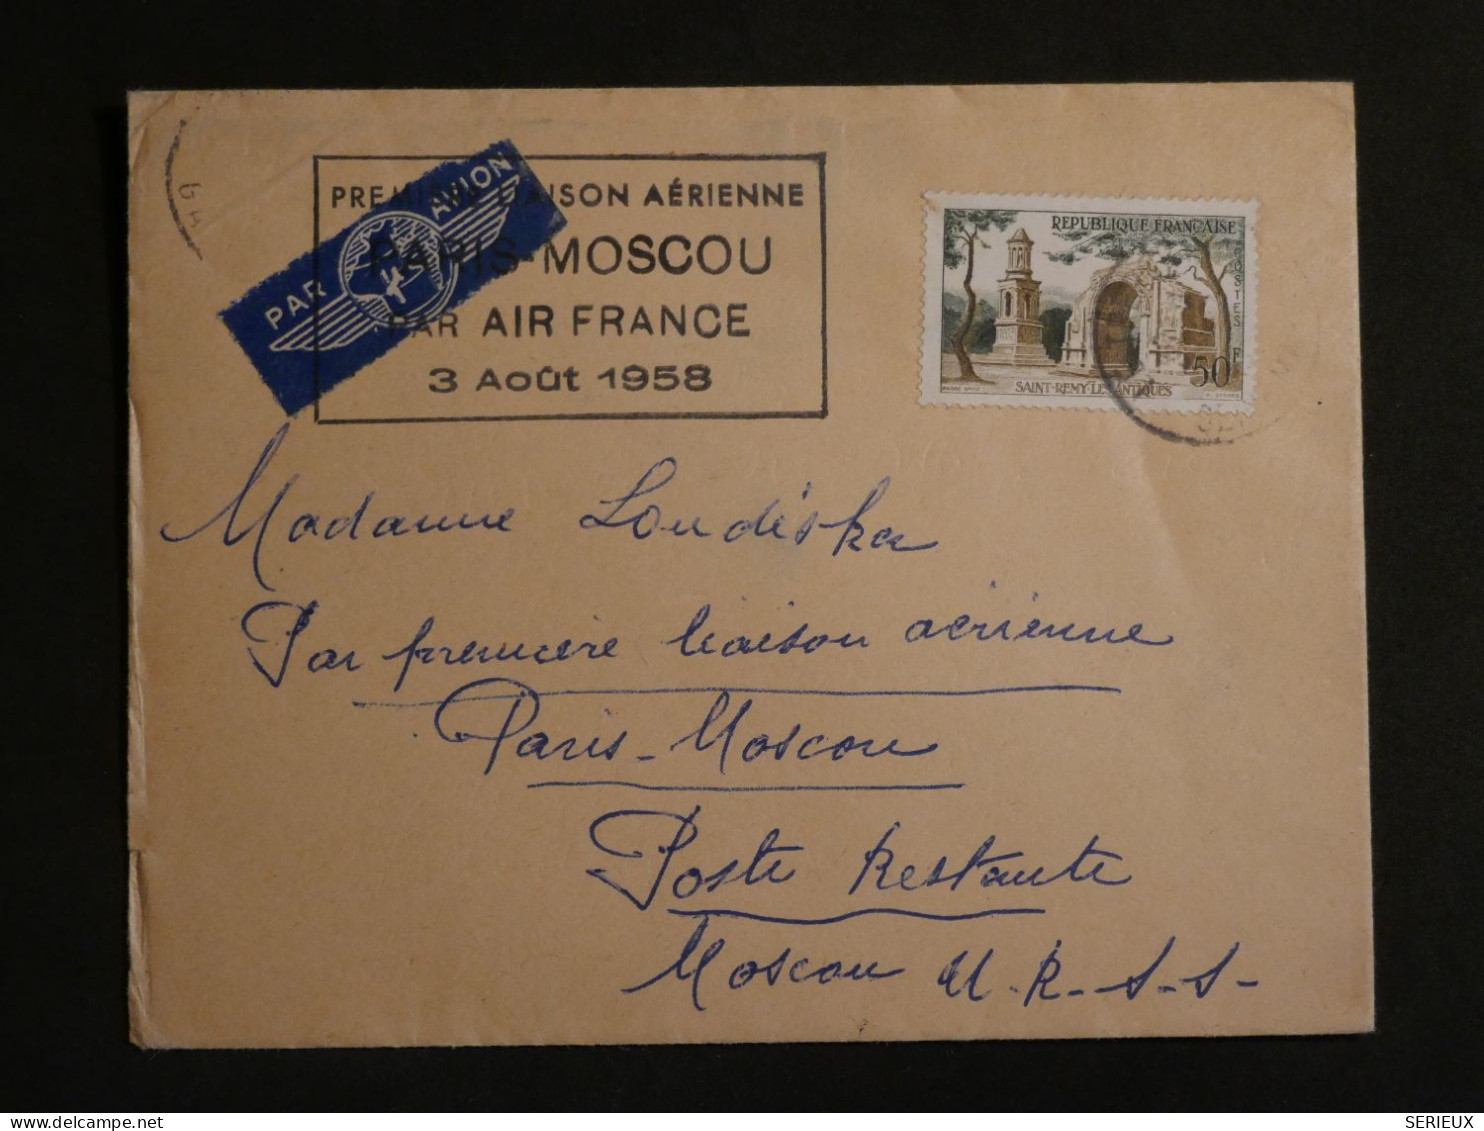 PAR AVION
PREMIÈRE LIAISON AÉRIENNE
PARIS-MOSCOU
PAR AIR FRANCE
3 Août 1958
REPUBLIQUE FRANÇAISE
POSTES
50F
SAINT-REMY-LES-ANTIQUES
Madame Loudéska
Par première liaison aérienne
Paris-Moscou
Poste Restante
Moscou U.R.S.S.
SERIEUX